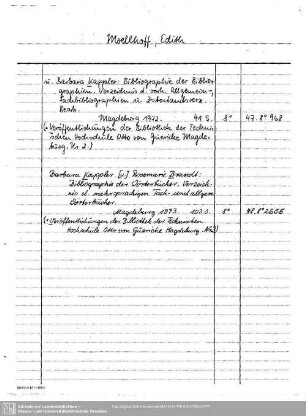 Moellhoff, Edith
u. Barbara Kappler: Bibliographie der Biblio-
graphien. Verzeichnis d. vorh. Allgemein-,
Fachbibliographien u. Datenbankverz.
Magdeburg 1972. 41 S. 8° 47.8°968
(= Veröffentlichungen der Bibliothek der Techni-
schen Hochschule Otto von Guericke Magde-
burg. Nr 2.)
Barbara Kappler [u.] Rosemarie Brandt:
Bibliographie der Wörterbücher. Verzeich-
nis d. mehrsprachigen Fach- und allgem.
Wörterbücher.
Magdeburg 1973. 102 S. 8° 48.8°2656
(= Veröffentlichungen der Bibliothek der Technischen
Hochschule Otto von Guericke Magdeburg
Sächsische Landesbibliothek –
Staats- und Universitätsbibliothek Dresden